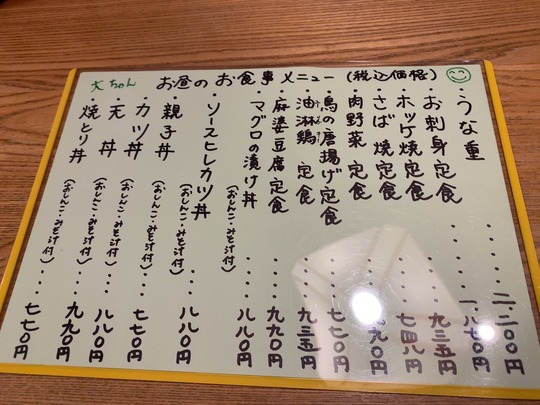 大ちゃん お昼のお食事メニュー (税込価格)
・うな重 ・・・・ 二.二〇〇円
・お刺身定食 ・・・ 一.八七〇円
・ホッケ焼定食 ・・・ 九三五円
・さば焼定食 ・・・ 七四八円
・肉野菜定食 ・・・ 九〇円
・鳥の唐揚げ定食 ・・・ 七七〇円
・油淋鶏定食 ・・・ 九三五円
・麻婆豆腐定食 ・・・ 九九〇円
・マグロの漬け丼 (おしんこ・みそ汁付) ・・・ 八八〇円
・ソースヒレカツ丼 (おしんこ・みそ汁付) ・・・ 八八〇円
・親子丼 (おしんこ・みそ汁付) ・・・ 七七〇円
・カツ丼 (おしんこ・みそ汁付) ・・・ 八八〇円
・天丼 (おしんこ・みそ汁付) ・・・ 九九〇円
・焼とり丼 (おしんこ・みそ汁付) ・・・ 七七〇円